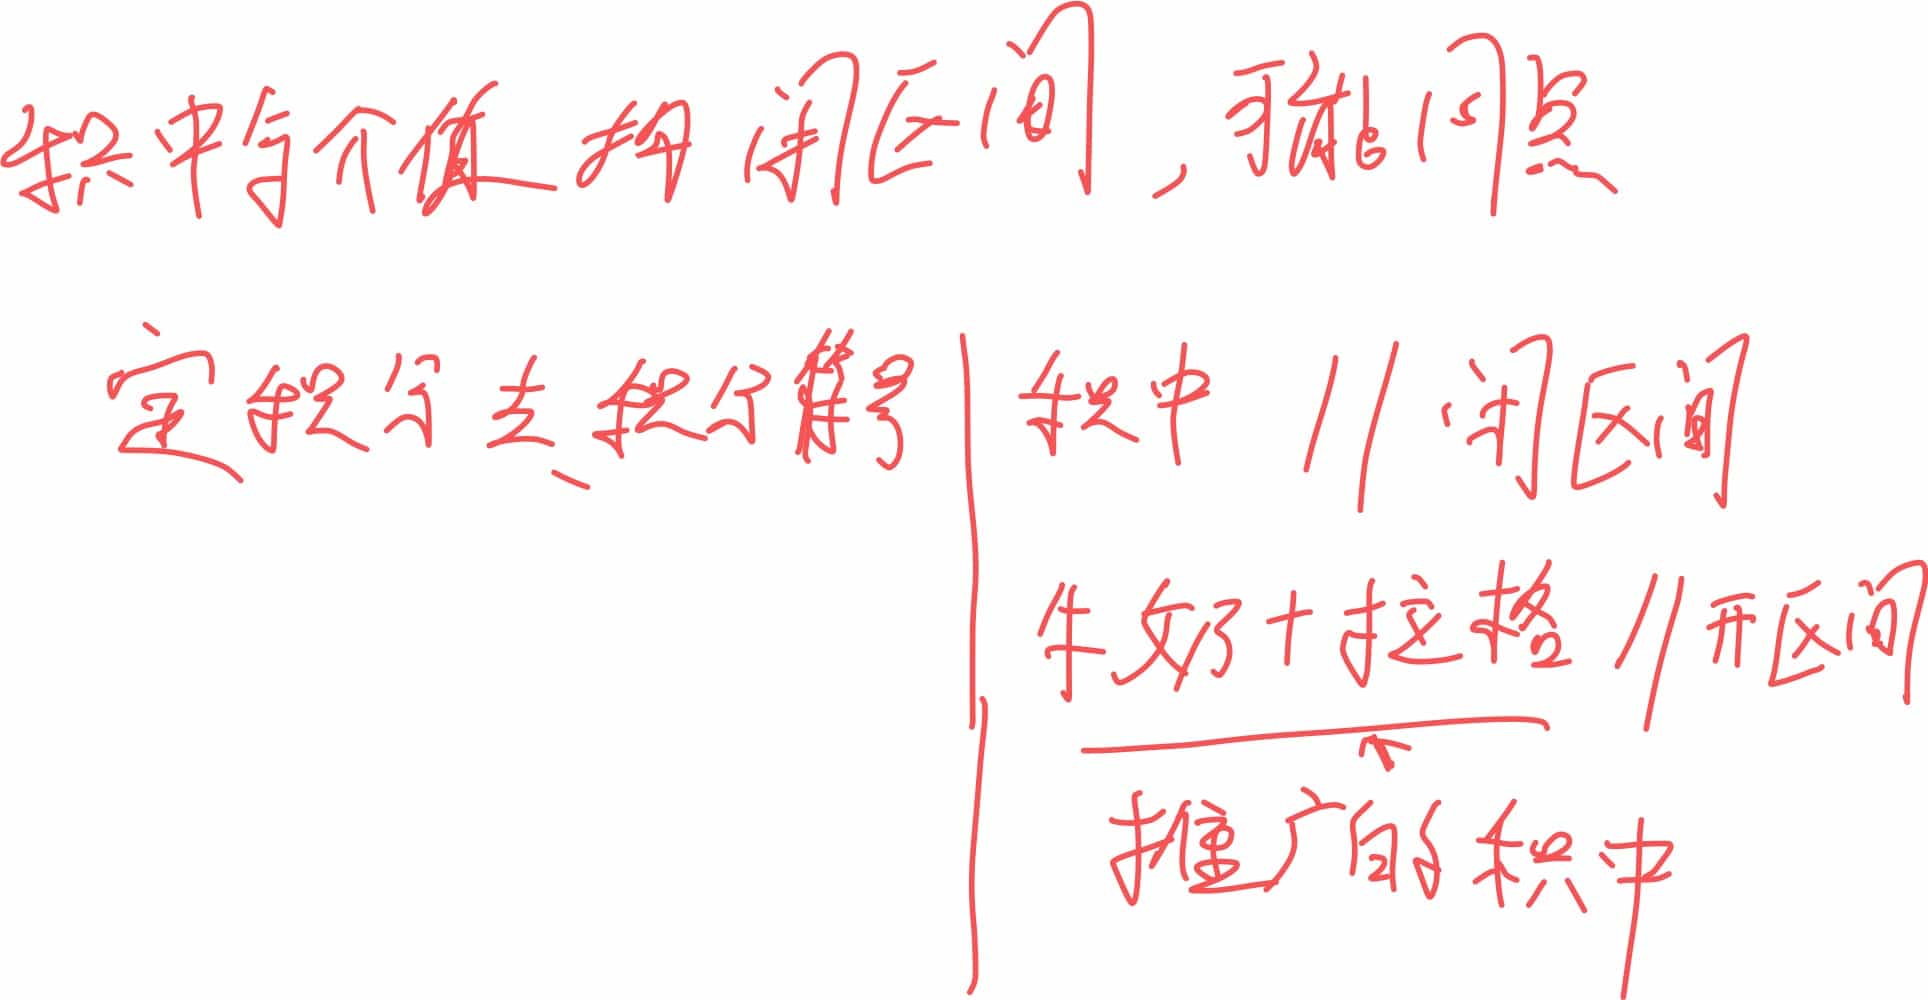 积中与介值 均闭区间，可能同点
定积分去积分符号
积中 // 闭区间
牛奶+拉格 // 开区间
推广的积中